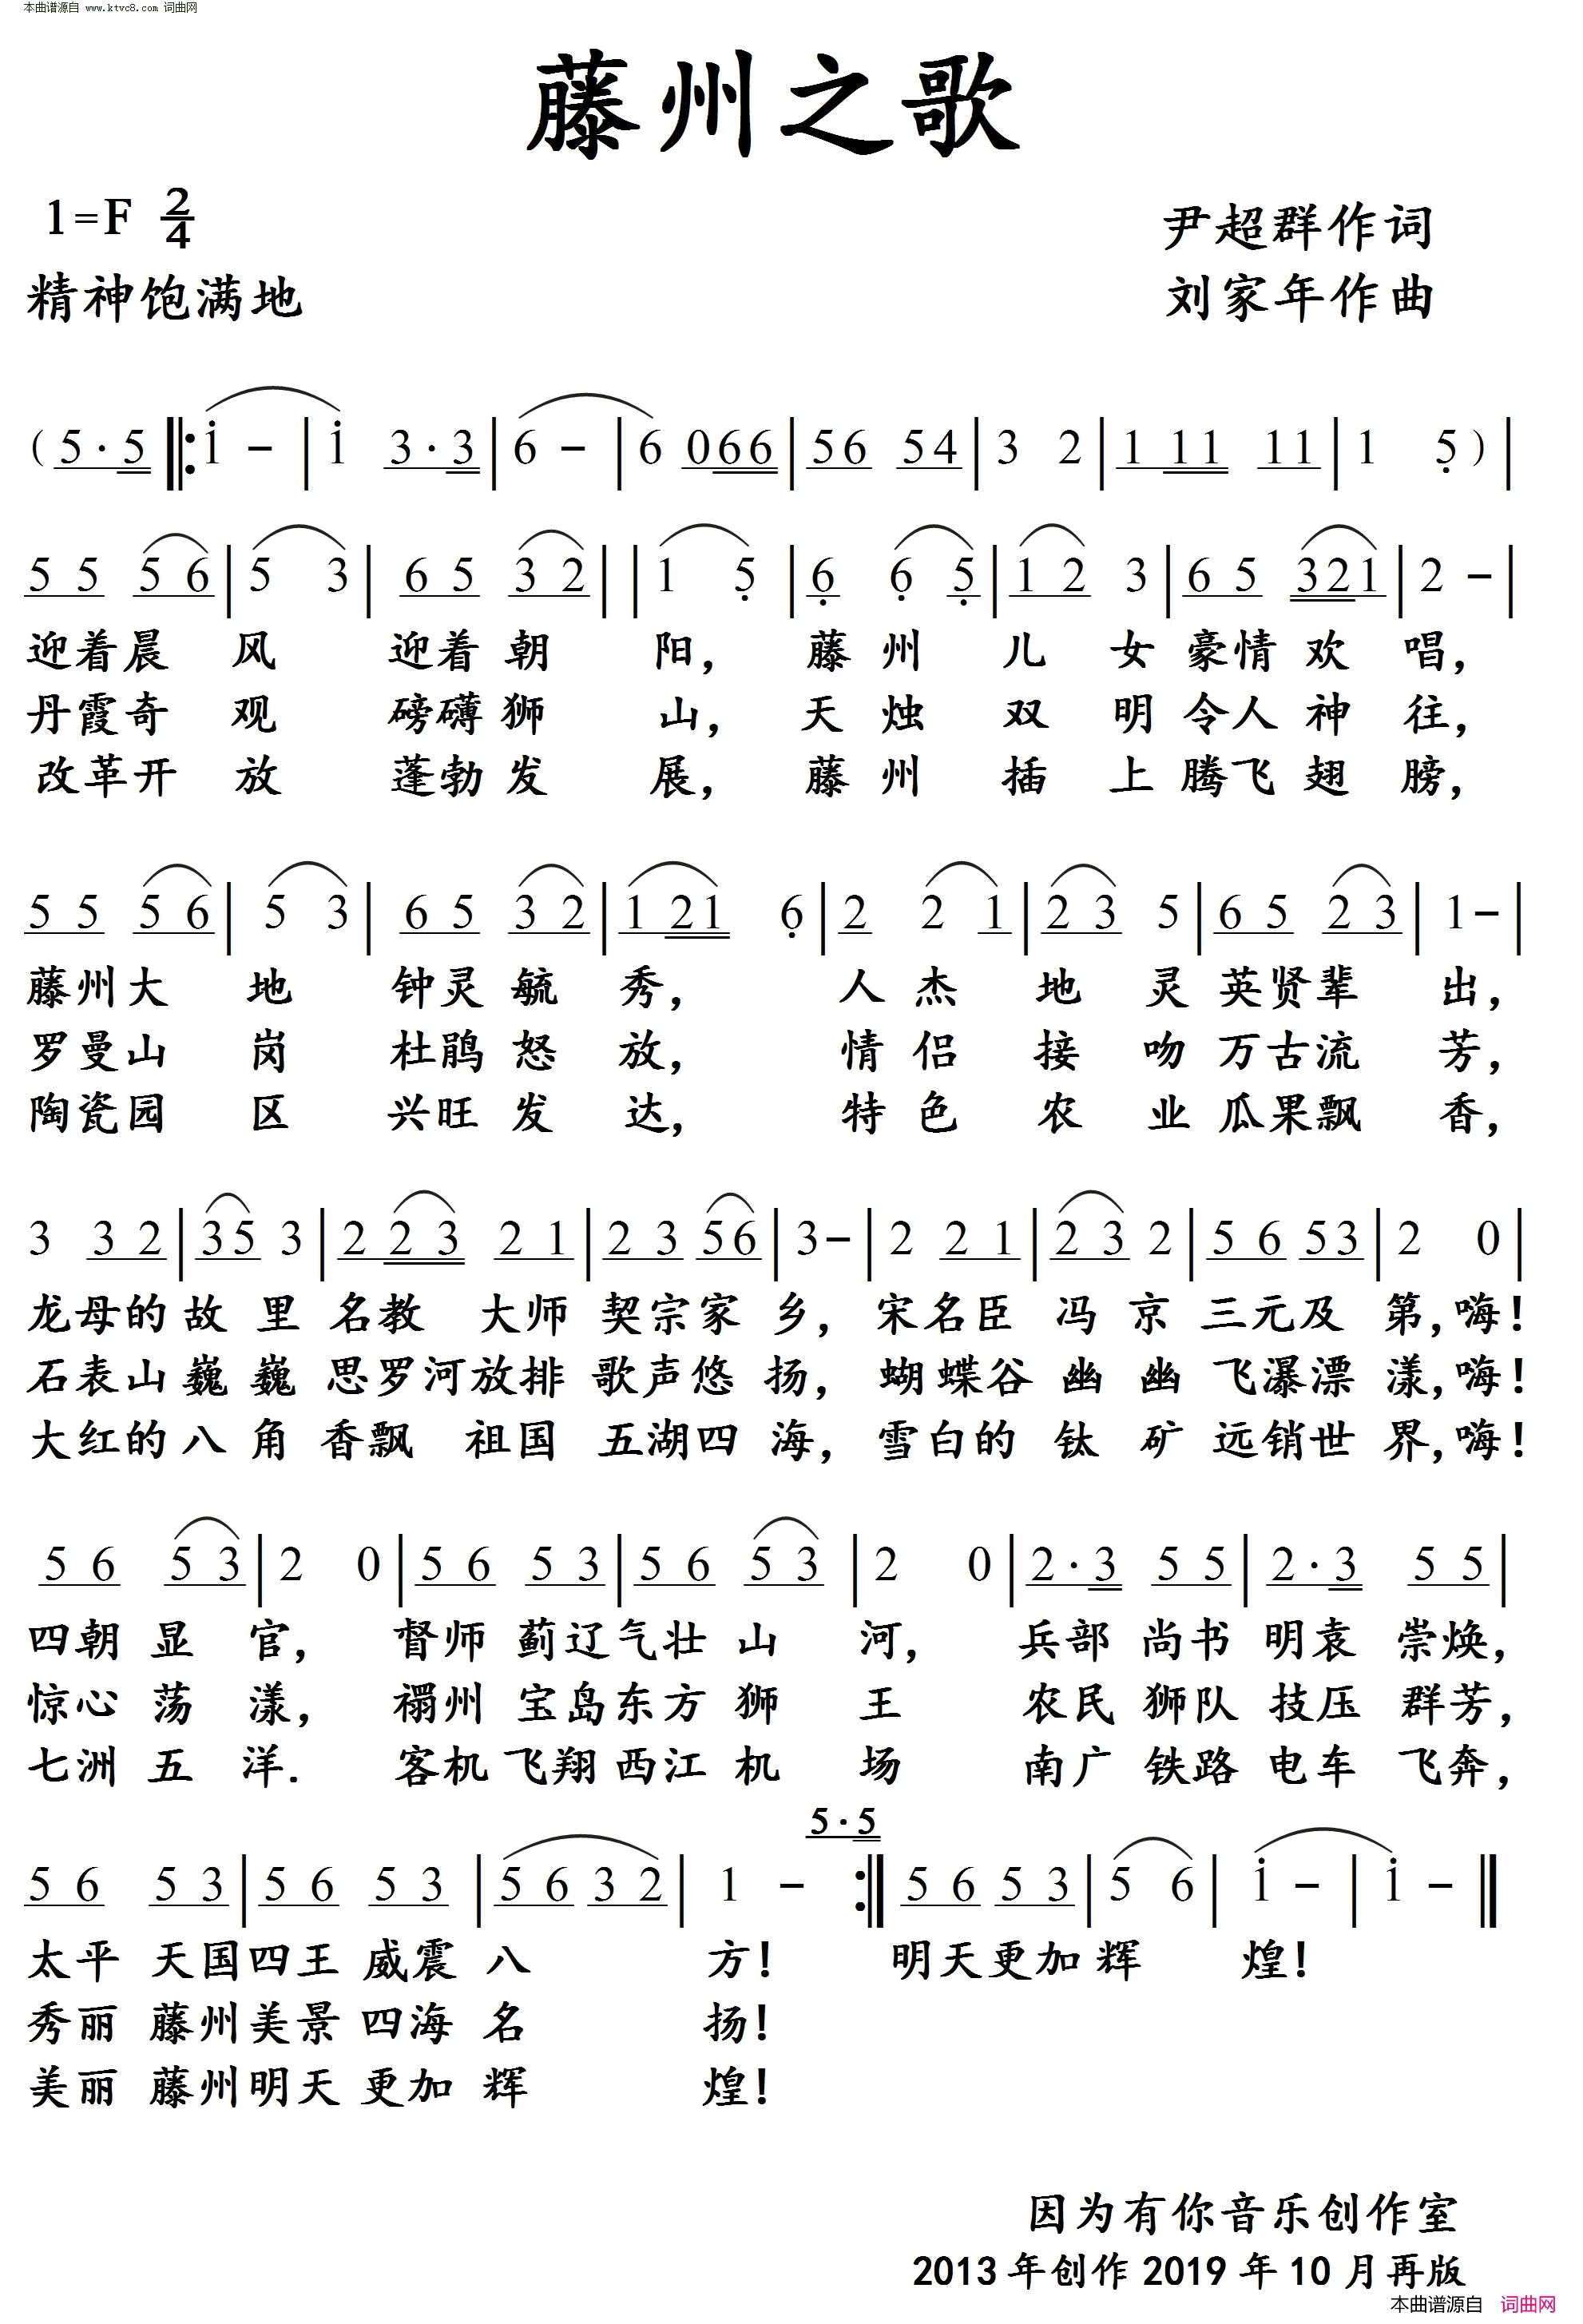 本曲谱源自 www.ktvc8.com 词曲网
藤州之歌
1=F 2/4
尹超群作词
精神饱满地
刘家年作曲
( 5·5 ‖: i - | i 3·3 | 6 - | 6 066 | 56 54 | 3 2 | 1 11 11 | 1 5 ) |
5 5 5 6 | 5 3 | 6 5 3 2 | | 1 5 | 6 6 5 | 1 2 3 | 6 5 321 | 2 - |
迎着晨 风 迎着朝 阳, 藤 州 儿 女 豪情 欢 唱,
丹霞奇 观 磅礴狮 山, 天 烛 双 明 令人 神 往,
改革开 放 蓬勃发 展, 藤 州 插 上 腾飞 翅 膀,
5 5 5 6 | 5 3 | 6 5 3 2 | 1 21 6 | 2 2 1 | 2 3 5 | 6 5 2 3 | 1 - |
藤州大 地 钟灵毓 秀, 人 杰 地 灵 英贤辈 出,
罗曼山 岗 杜鹃怒 放, 情 侣 接 吻 万古流 芳,
陶瓷园 区 兴旺发 达, 特 色 农 业 瓜果飘 香,
3 3 2 | 35 3 | 2 2 3 2 1 | 2 3 56 | 3 - | 2 2 1 | 2 3 2 | 5 6 53 | 2 0 |
龙母的 故 里 名教 大师 契宗家 乡, 宋名臣 冯 京 三元及 第,嗨!
石表山 巍 巍 思罗河放排 歌声悠 扬, 蝴蝶谷 幽 幽 飞瀑漂 漾,嗨!
大红的 八 角 香飘 祖国 五湖四 海, 雪白的 钛 矿 远销世 界,嗨!
5 6 5 3 | 2 0 | 5 6 5 3 | 5 6 5 3 | 2 0 | 2·3 5 5 | 2·3 5 5 |
四朝 显 官, 督师 蓟辽气壮 山 河, 兵部 尚书 明袁 崇焕,
惊心 荡 漾, 禤州 宝岛东方 狮 王 农民 狮队 技压 群芳,
七洲 五 洋. 客机 飞翔西江 机 场 南广 铁路 电车 飞奔,
5·5
5 6 5 3 | 5 6 5 3 | 5 6 3 2 | 1 - :‖ 5 6 5 3 | 5 6 | i - | i - ‖
太平 天国四王 威震 八 方! 明天更加 辉 煌!
秀丽 藤州美景 四海 名 扬!
美丽 藤州明天 更加 辉 煌!
因为有你音乐创作室
2013年创作2019年10月再版
本曲谱源自 词曲网